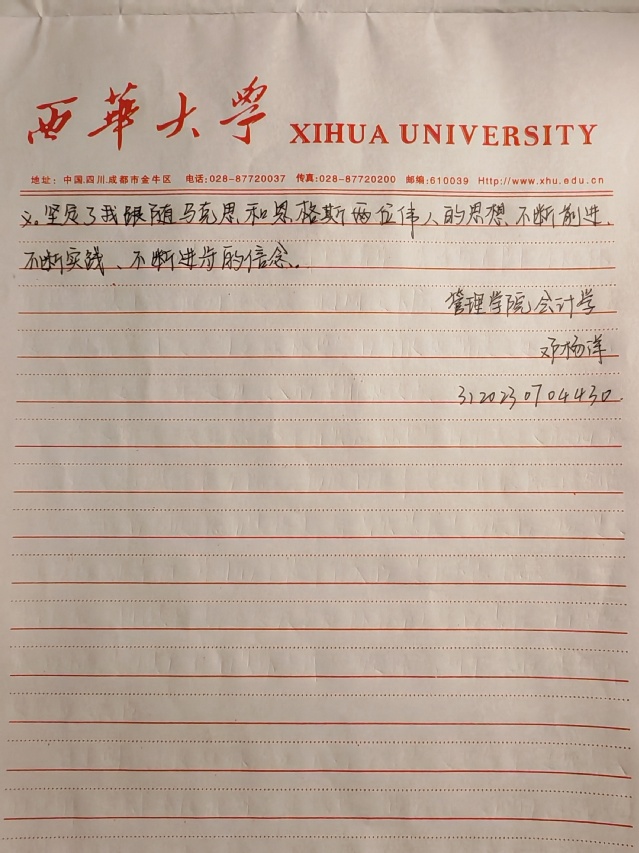 西華大學 XIHUA UNIVERSITY
地址：中国.四川.成都市金牛区 电话:028-87720037 传真:028-87720200 邮编:610039 Http://www.xhu.edu.cn
义。坚定了我跟随马克思和恩格斯两位伟人的思想、不断前进、
不断实践、不断进步的信念。
管理学院会计学
邓杨洋
3120230704430